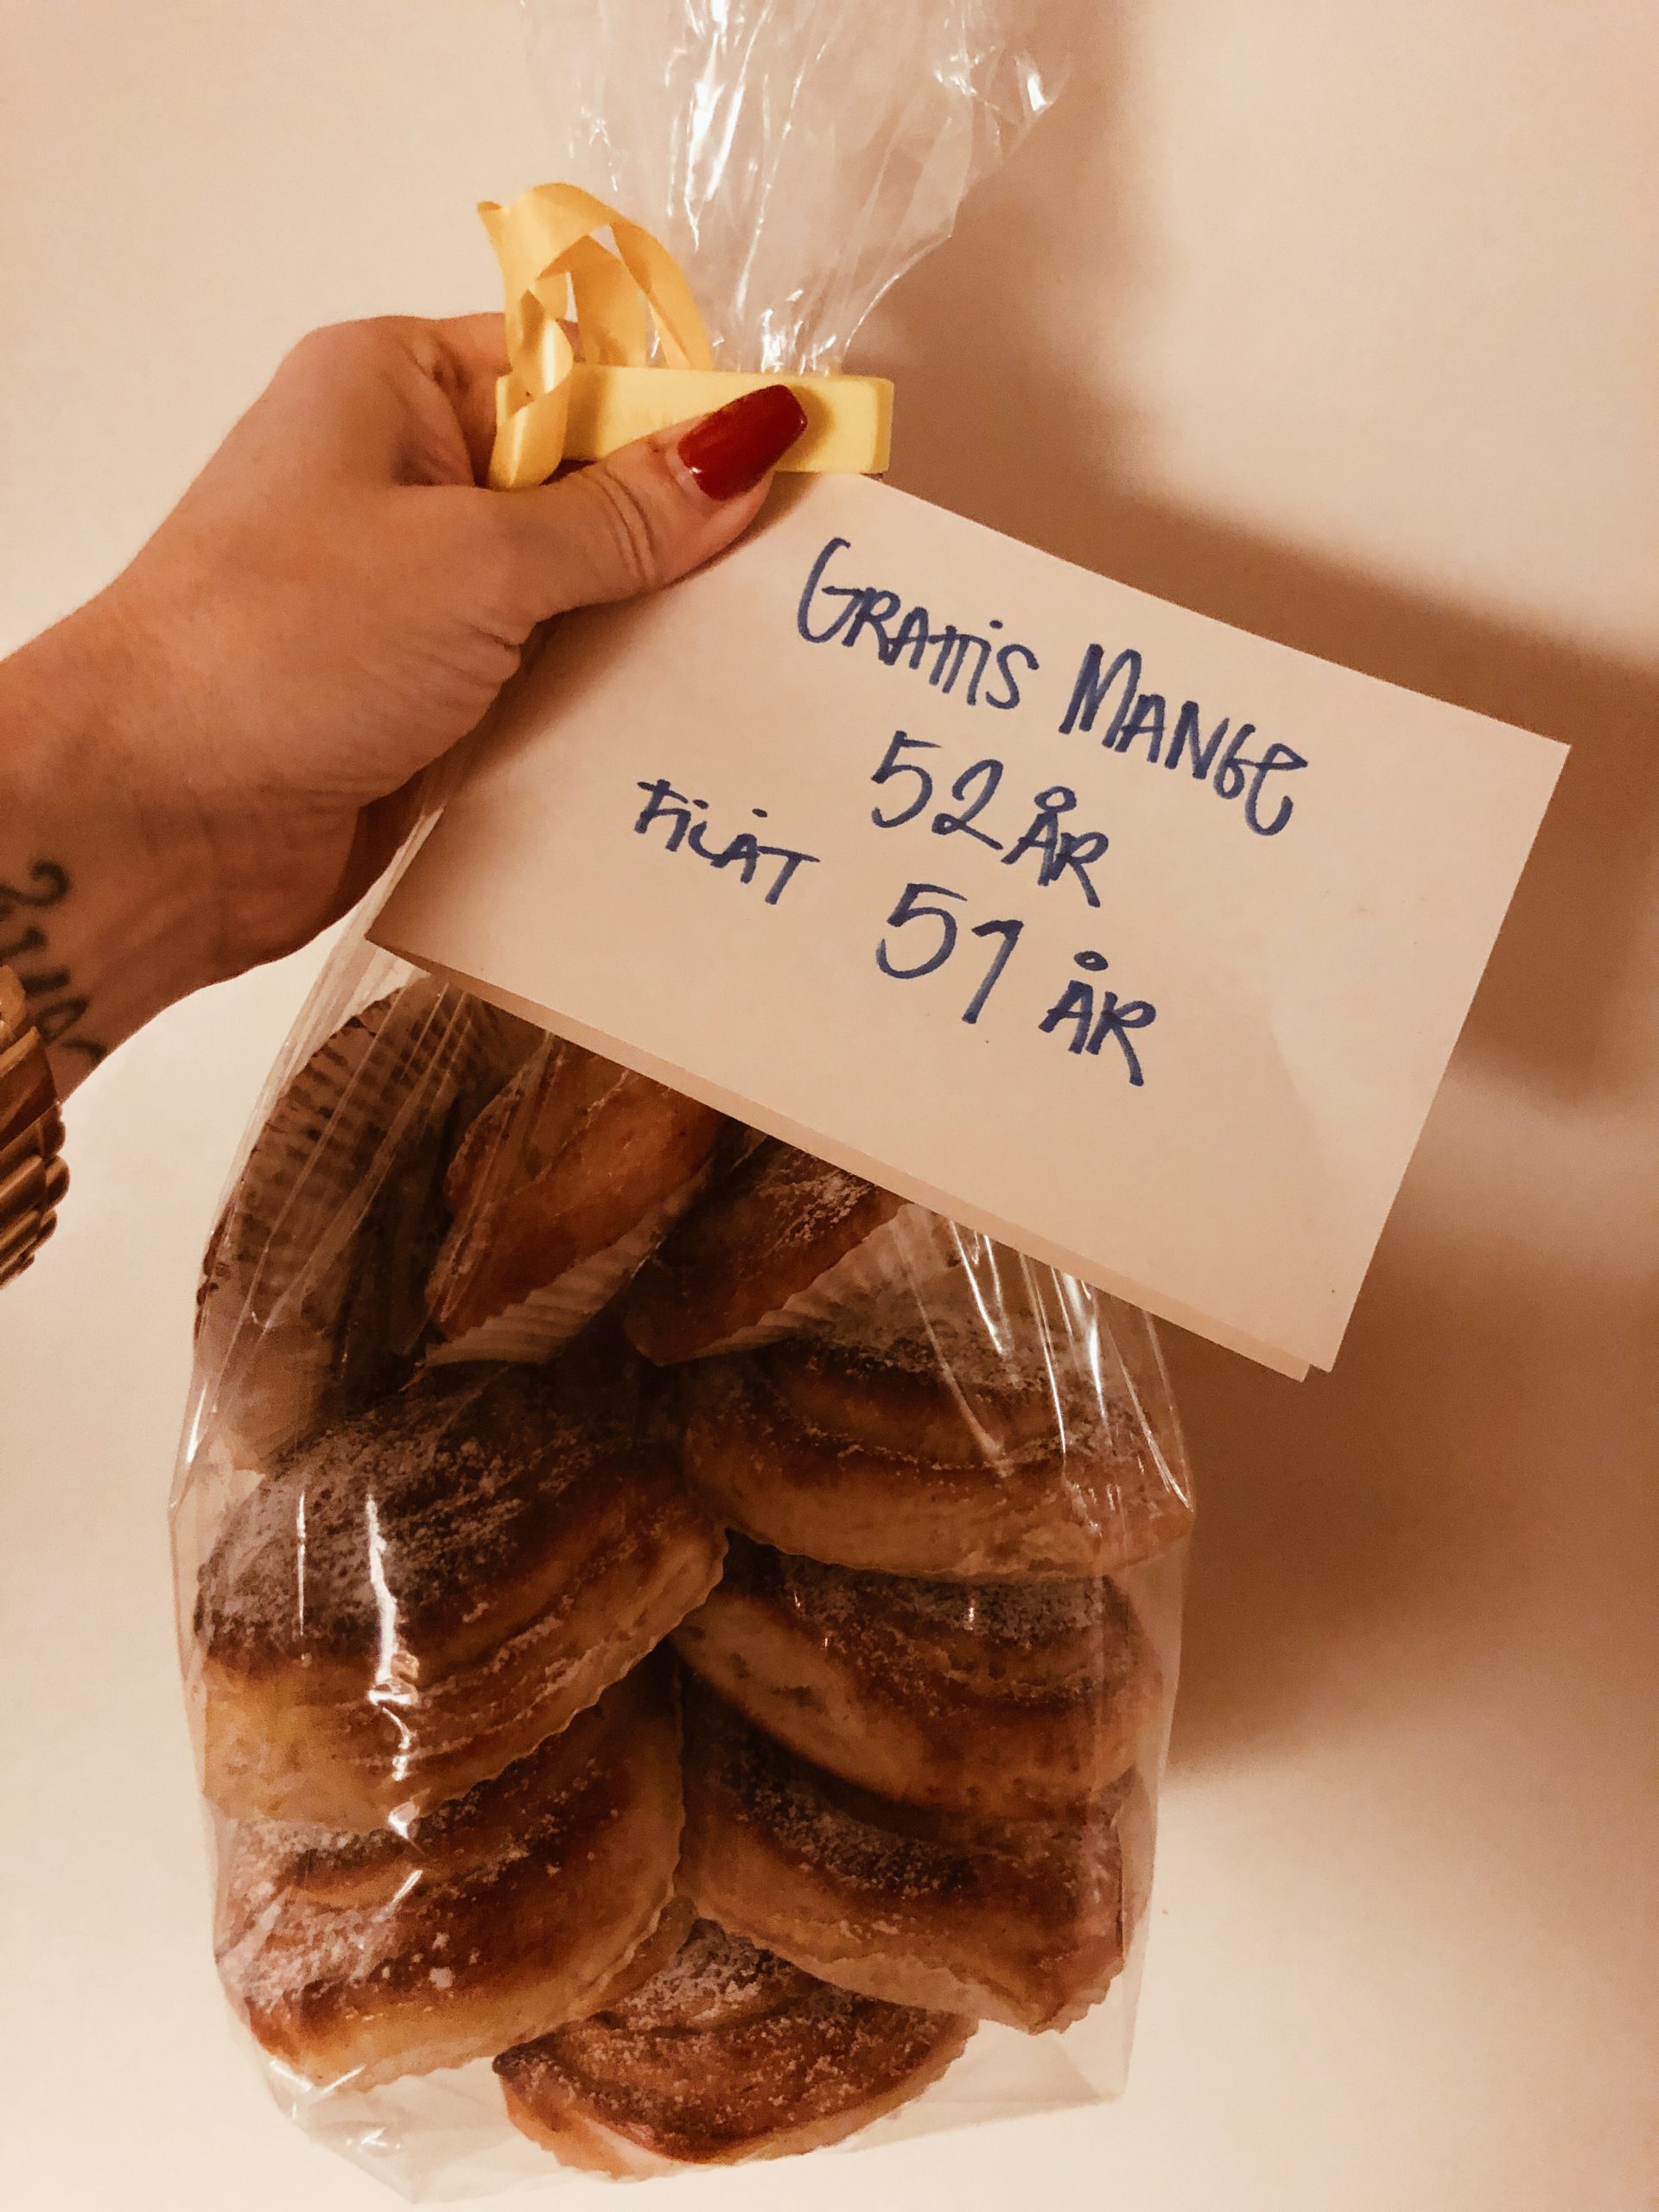 GRATTIS MANGE
52 ÅR
FILÅT 51 ÅR